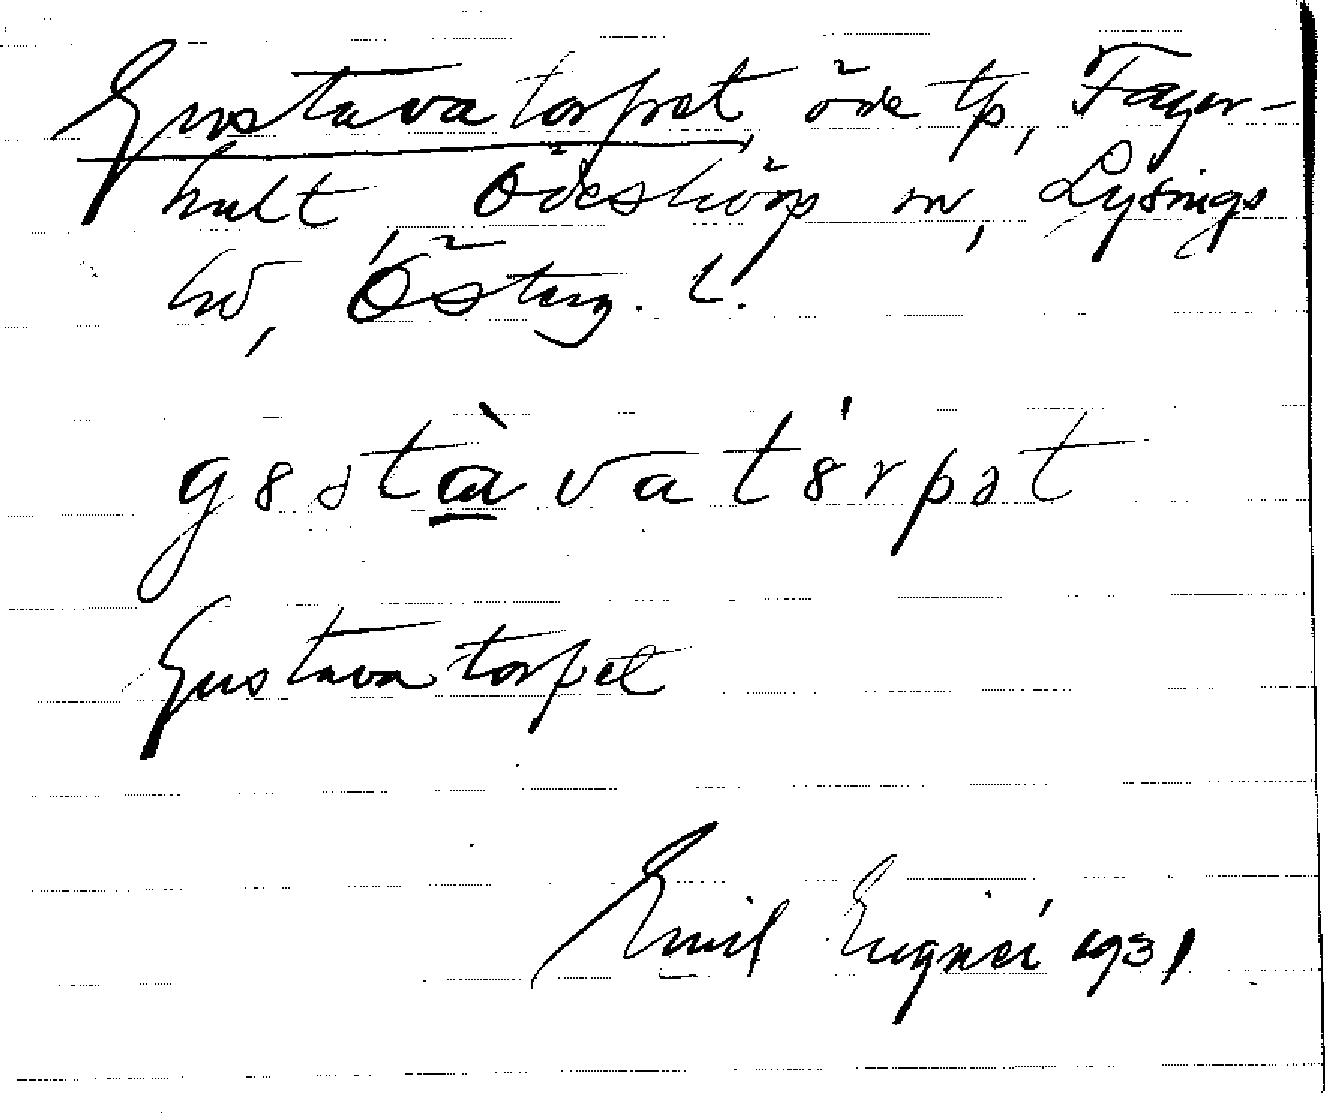 Gustavatorpet, öde tp, Fager-
hult, Ödeshögs sn, Lysings
hd, Österg. L.
gɵstàvatɵ́rpət
Gustavatorpet
Emil Eugnér 1931